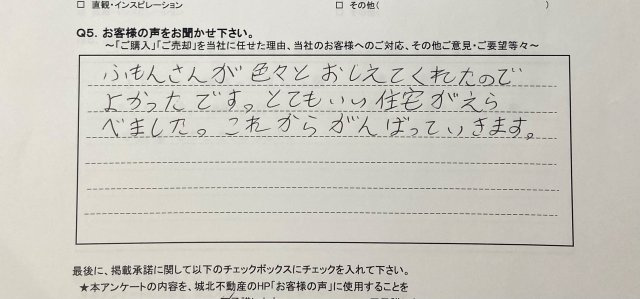 □ 直観・インスピレーション □ その他( )
Q5. お客様の声をお聞かせ下さい。
～「ご購入」「ご売却」を当社に任せた理由、当社のお客様へのご対応、その他ご意見・ご要望等々～
ふもんさんが色々とおしえてくれたので
よかったです。とてもいい住宅がえら
べました。これからがんばっていきます。
最後に、掲載承諾に関して以下のチェックボックスにチェックを入れて下さい。
★本アンケートの内容を、城北不動産のHP「お客様の声」に使用することを